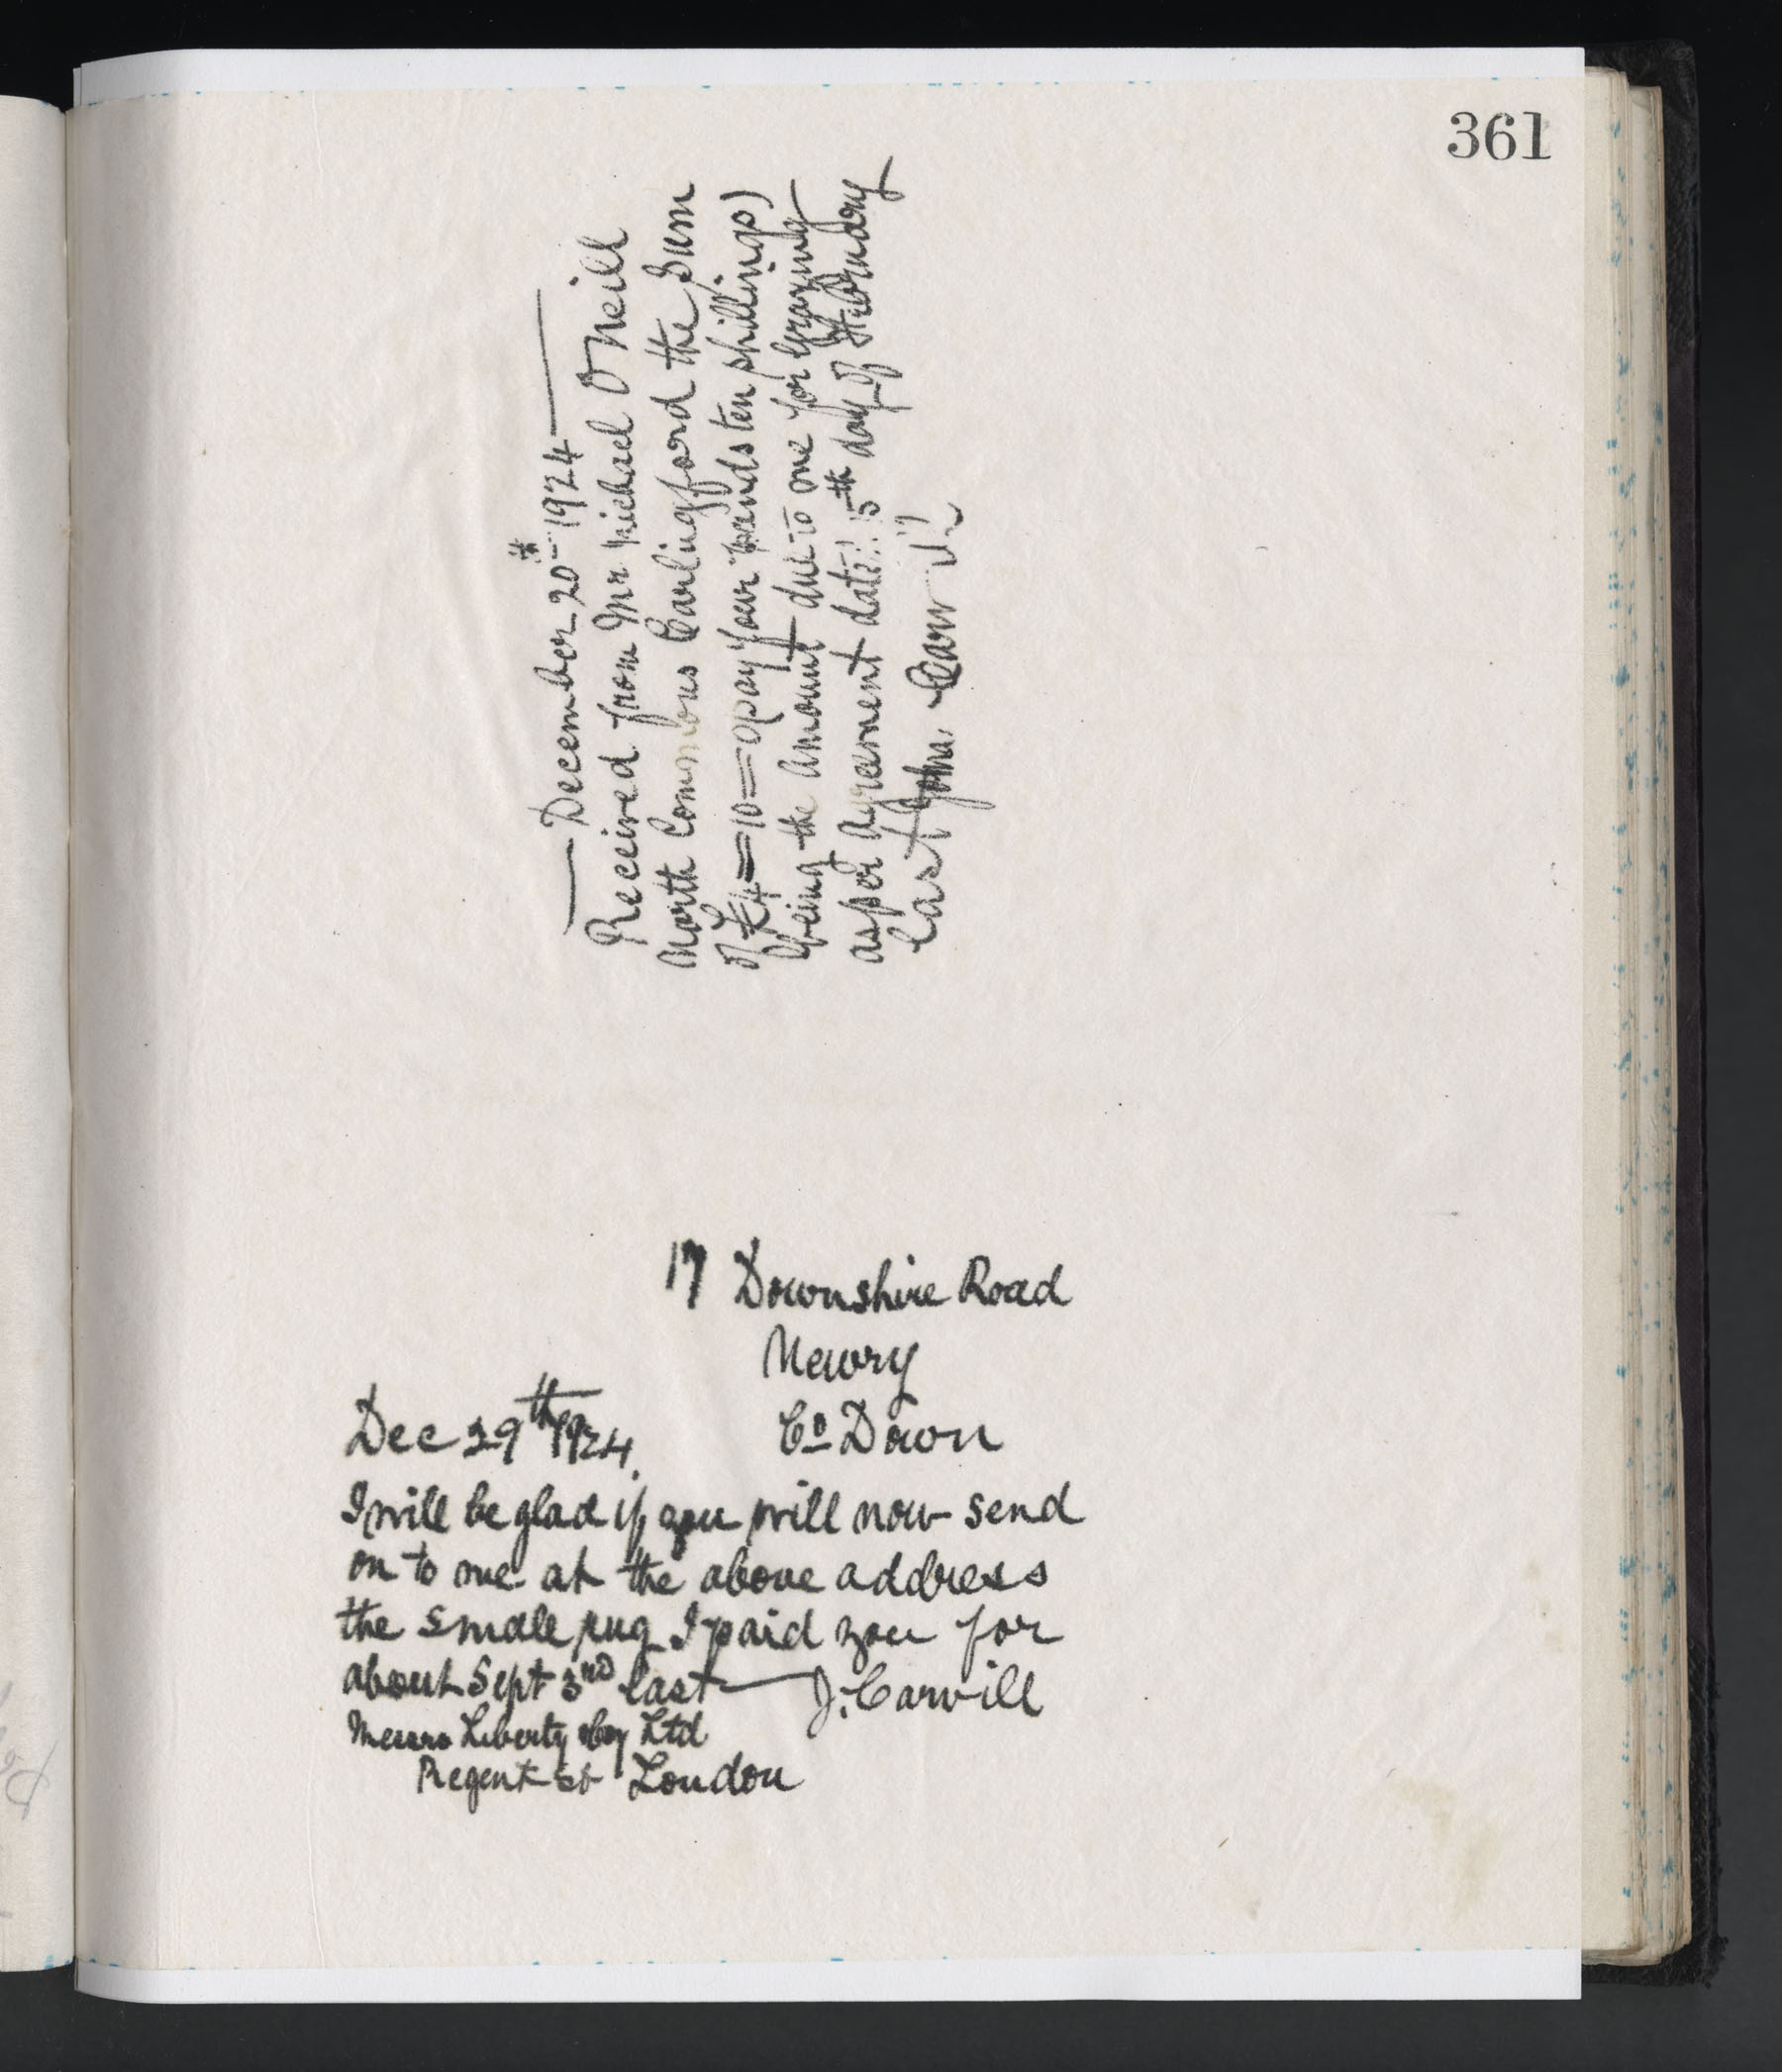 361
— December 20th 1924 —
Received from Mr Michael O'Neill
North Commons Carlingford the Sum
of £4=10=0 (say four pounds ten shillings)
being the amount due to me for Grazing
as per agreement date! 15th day of February
last John Carvill
17 Downshire Road
Newry
Co Down
Dec 29th 1924.
I will be glad if you will now send
on to me at the above address
the small rug I paid you for
about Sept 3rd last — J. Carvill
Messrs Liberty & Coy Ltd
Regent St London